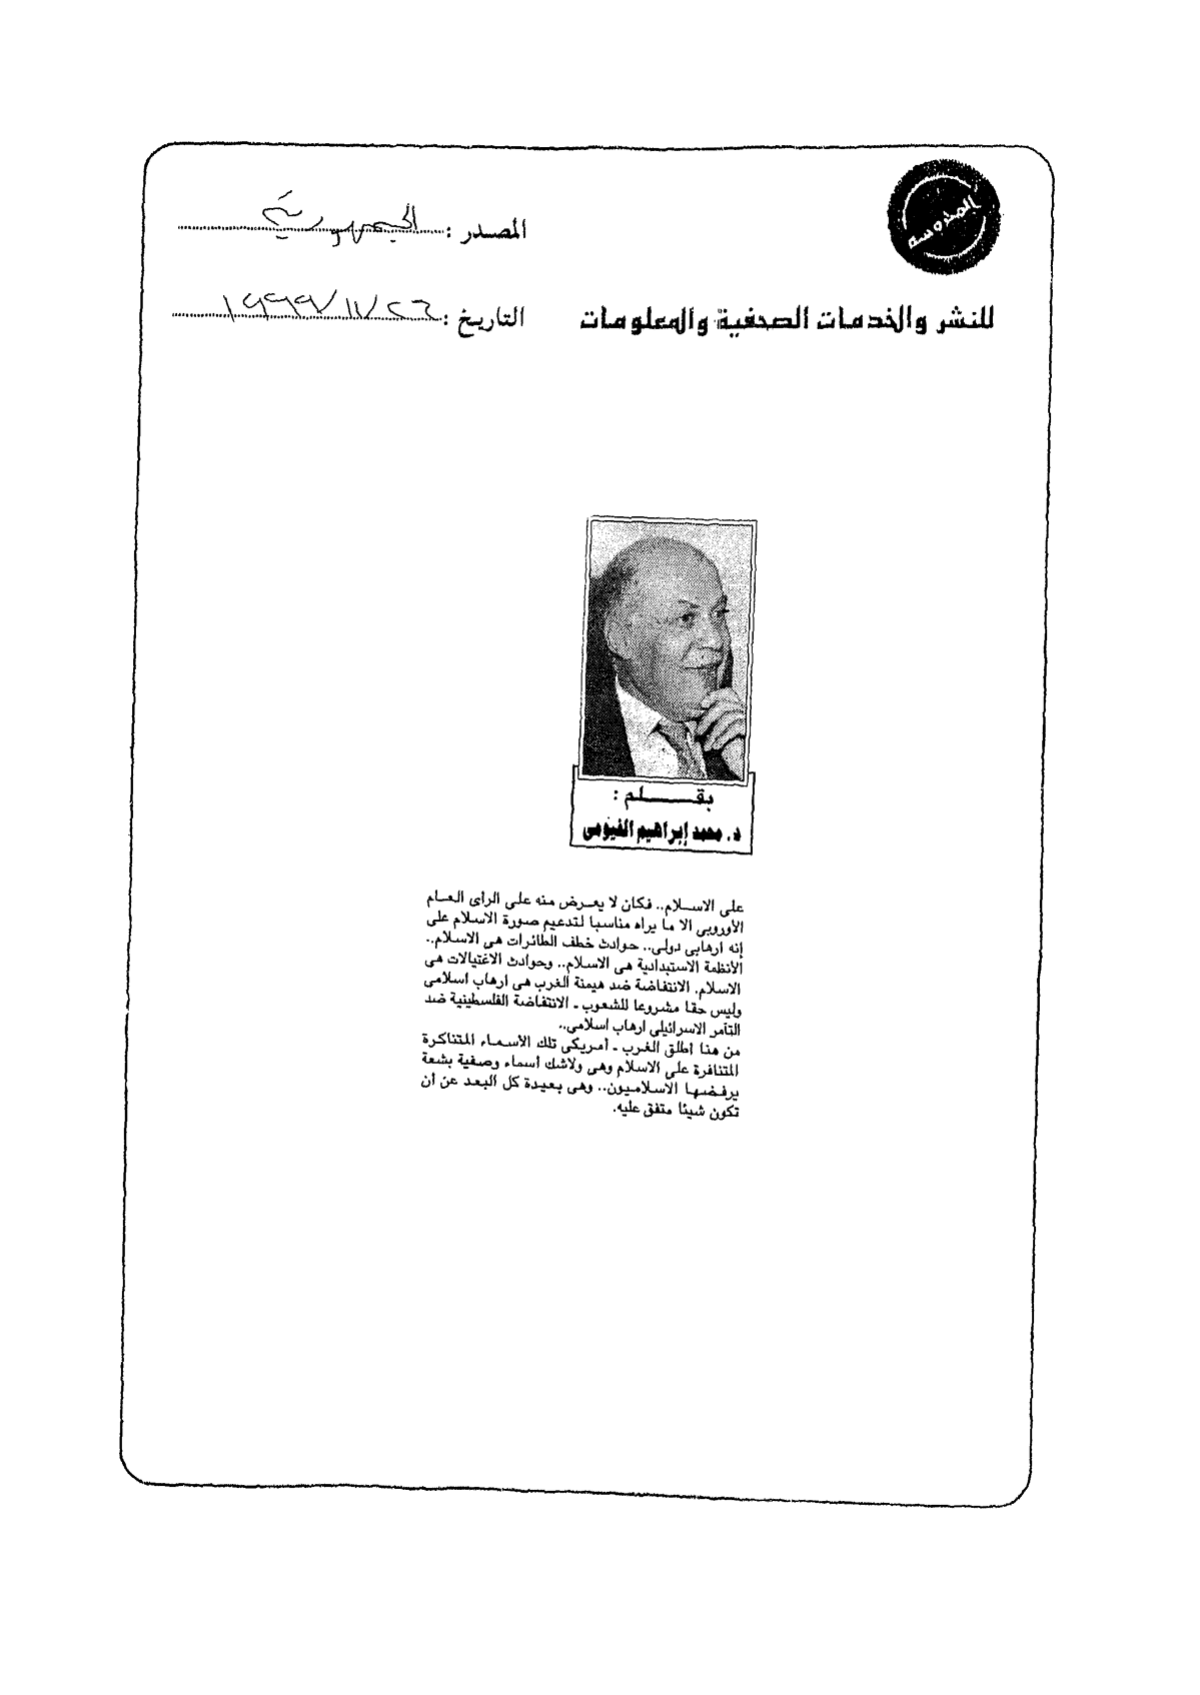 المحروسة
المصدر : الجمهورية
التاريخ : ٢٦ / ١١ / ١٩٩٩
للنشر والخدمات الصحفية والمعلومات
بقـــلم :
د. محمد إبراهيم الفيومى
على الاسلام.. فكان لا يعرض منه على الرأى العام
الأوروبى الا ما يراه مناسبا لتدعيم صورة الاسلام على
إنه ارهابى دولى.. حوادث خطف الطائرات هى الاسلام..
الأنظمة الاستبدادية هى الاسلام.. وحوادث الاغتيالات هى
الاسلام. الانتفاضة ضد هيمنة الغرب هى ارهاب اسلامى
وليس حقا مشروعا للشعوب ـ الانتفاضة الفلسطينية ضد
التآمر الاسرائيلى ارهاب اسلامى..
من هنا أطلق الغرب ـ أمريكى تلك الأسماء المتناكرة
المتنافرة على الاسلام وهى ولاشك أسماء وصفية بشعة
يرفضها الاسلاميون.. وهى بعيدة كل البعد عن أن
تكون شيئا متفق عليه.